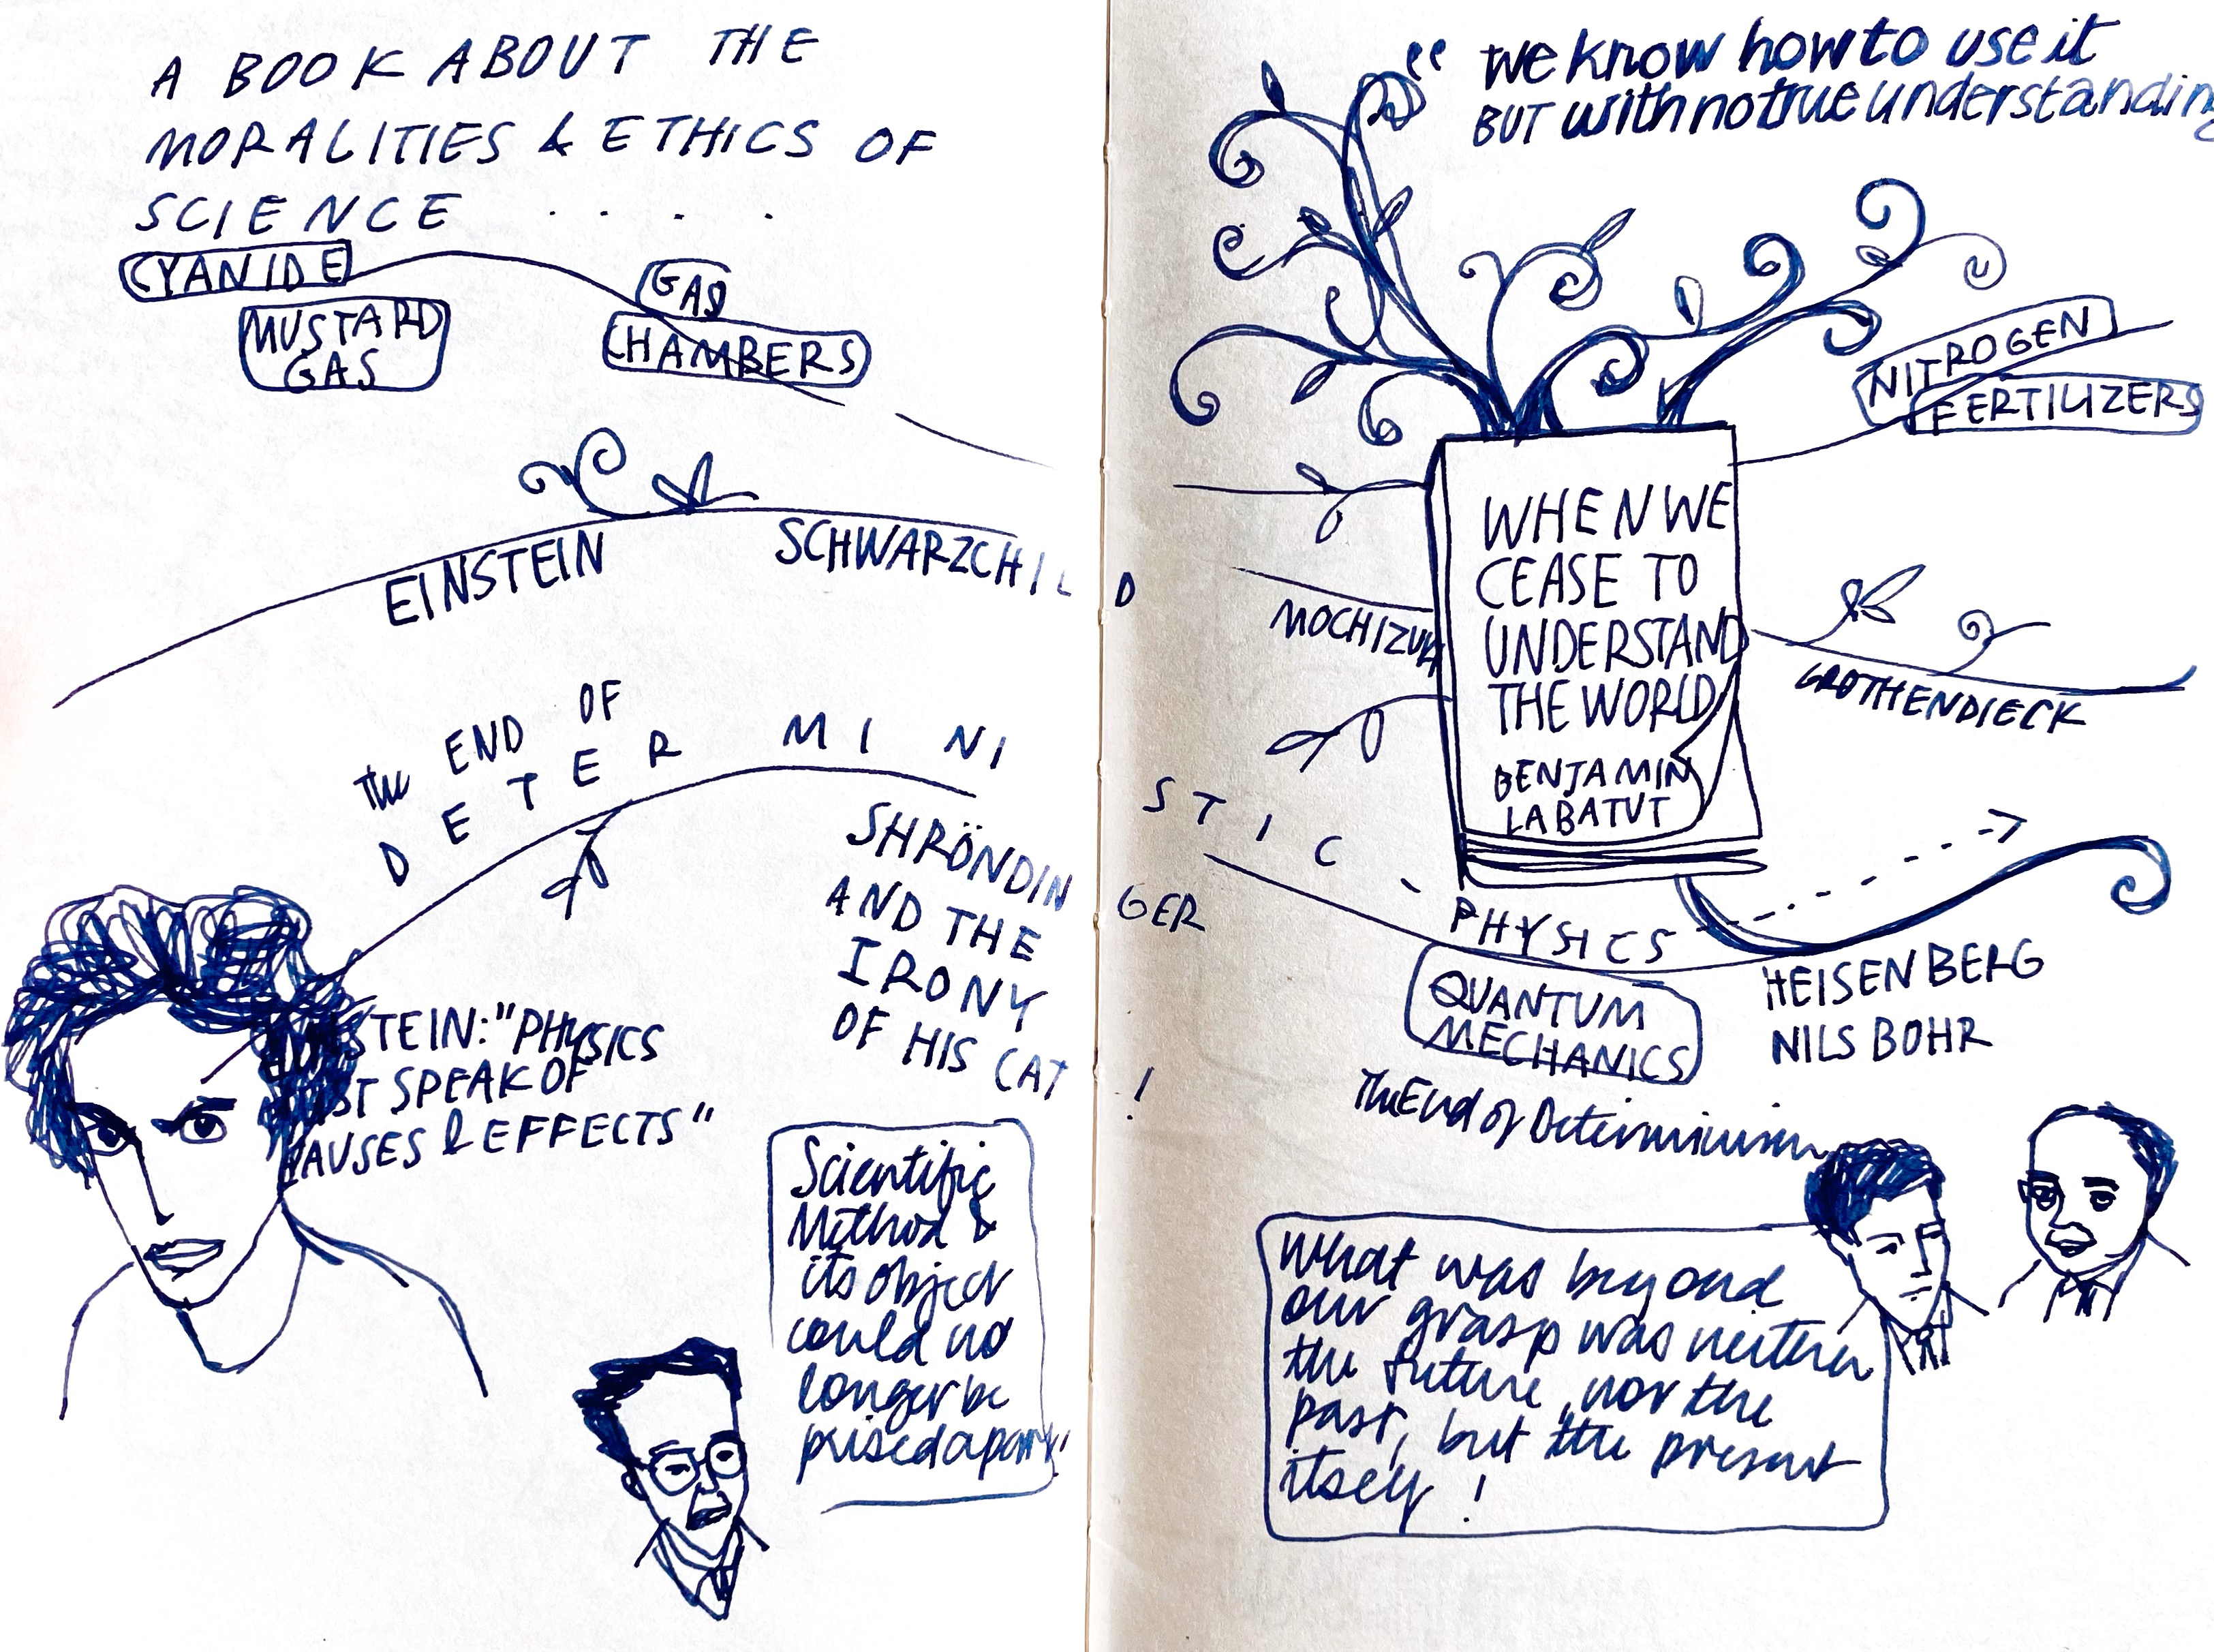 A BOOK ABOUT THE
MORALITIES & ETHICS OF
SCIENCE . . . .
CYANIDE
MUSTARD
GAS
GAS
CHAMBERS
EINSTEIN SCHWARZCHILD
The END OF
DETERMINISTIC - PHYSICS
SHRÖNDINGER
AND THE
IRONY
OF HIS CAT!
EINSTEIN: "PHYSICS
MUST SPEAK OF
CAUSES & EFFECTS"
Scientific
Method &
its object
could no
longer be
prised apart!
“ We know how to use it
BUT with no true understanding
NITROGEN
FERTILIZERS
WHEN WE
CEASE TO
UNDERSTAND
THE WORLD
BENJAMIN
LABATUT
MOCHIZUKI
GROTHENDIECK
QUANTUM
MECHANICS
HEISENBERG
NILS BOHR
The End of Determinism
What was beyond
our grasp was neither
the future, nor the
past, but the present
itself !